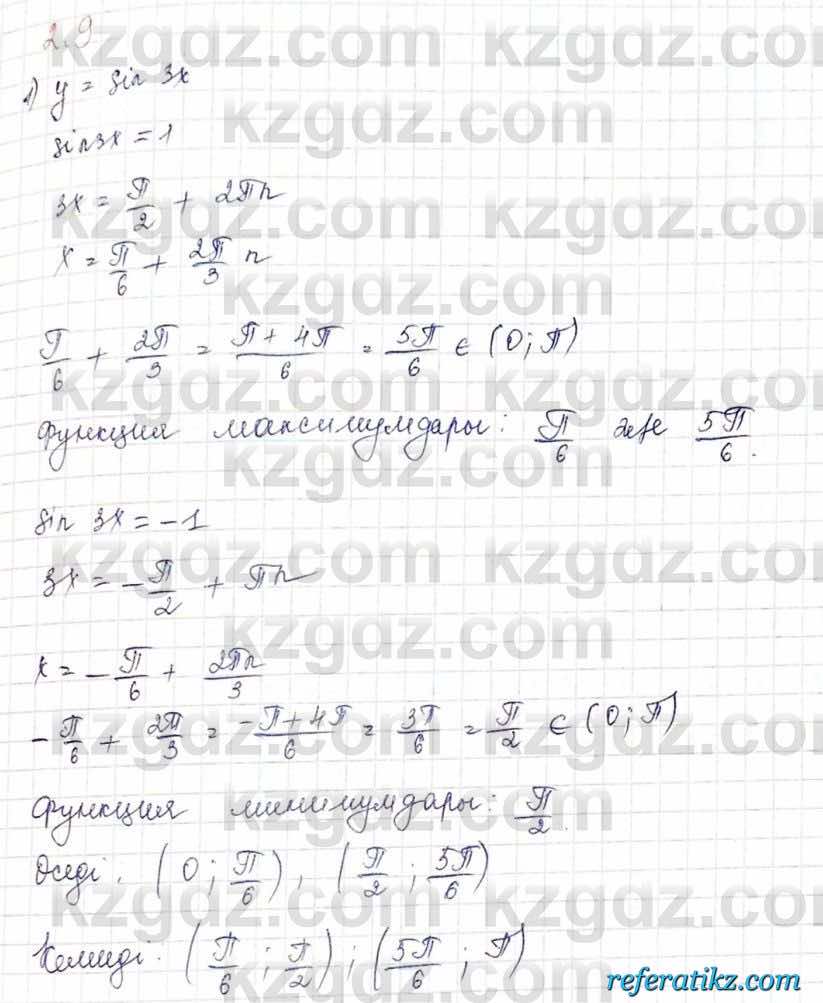 2.9
1) y = sin 3x
sin3x = 1
3x = π/2 + 2πn
x = π/6 + 2π/3 n
π/6 + 2π/3 = π + 4π/6 = 5π/6 ∈ (0; π)
Функция максимумдары: π/6 және 5π/6.
sin 3x = -1
3x = -π/2 + πn
x = -π/6 + 2πn/3
-π/6 + 2π/3 = -π + 4π/6 = 3π/6 = π/2 ∈ (0; π)
Функция минимумдары: π/2.
Өседі: (0; π/6), (π/2; 5π/6)
Кемиді: (π/6; π/2); (5π/6; π)
kzgdz.com
referatikz.com